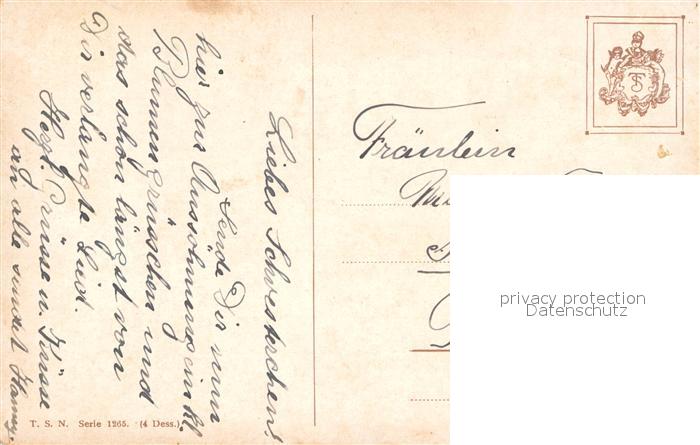 Liebes Schwesterchen!
Sende Dir nun
hier zur Aussöhnung ein kl.
Blumengrüsschen und
das schon längst von
Dir verlangte Lied.
Herzl. Grüsse u. Küsse
an alle sendet Hansy.
T. S. N. Serie 1265. (4 Dess.)
Fräulein
privacy protection
Datenschutz